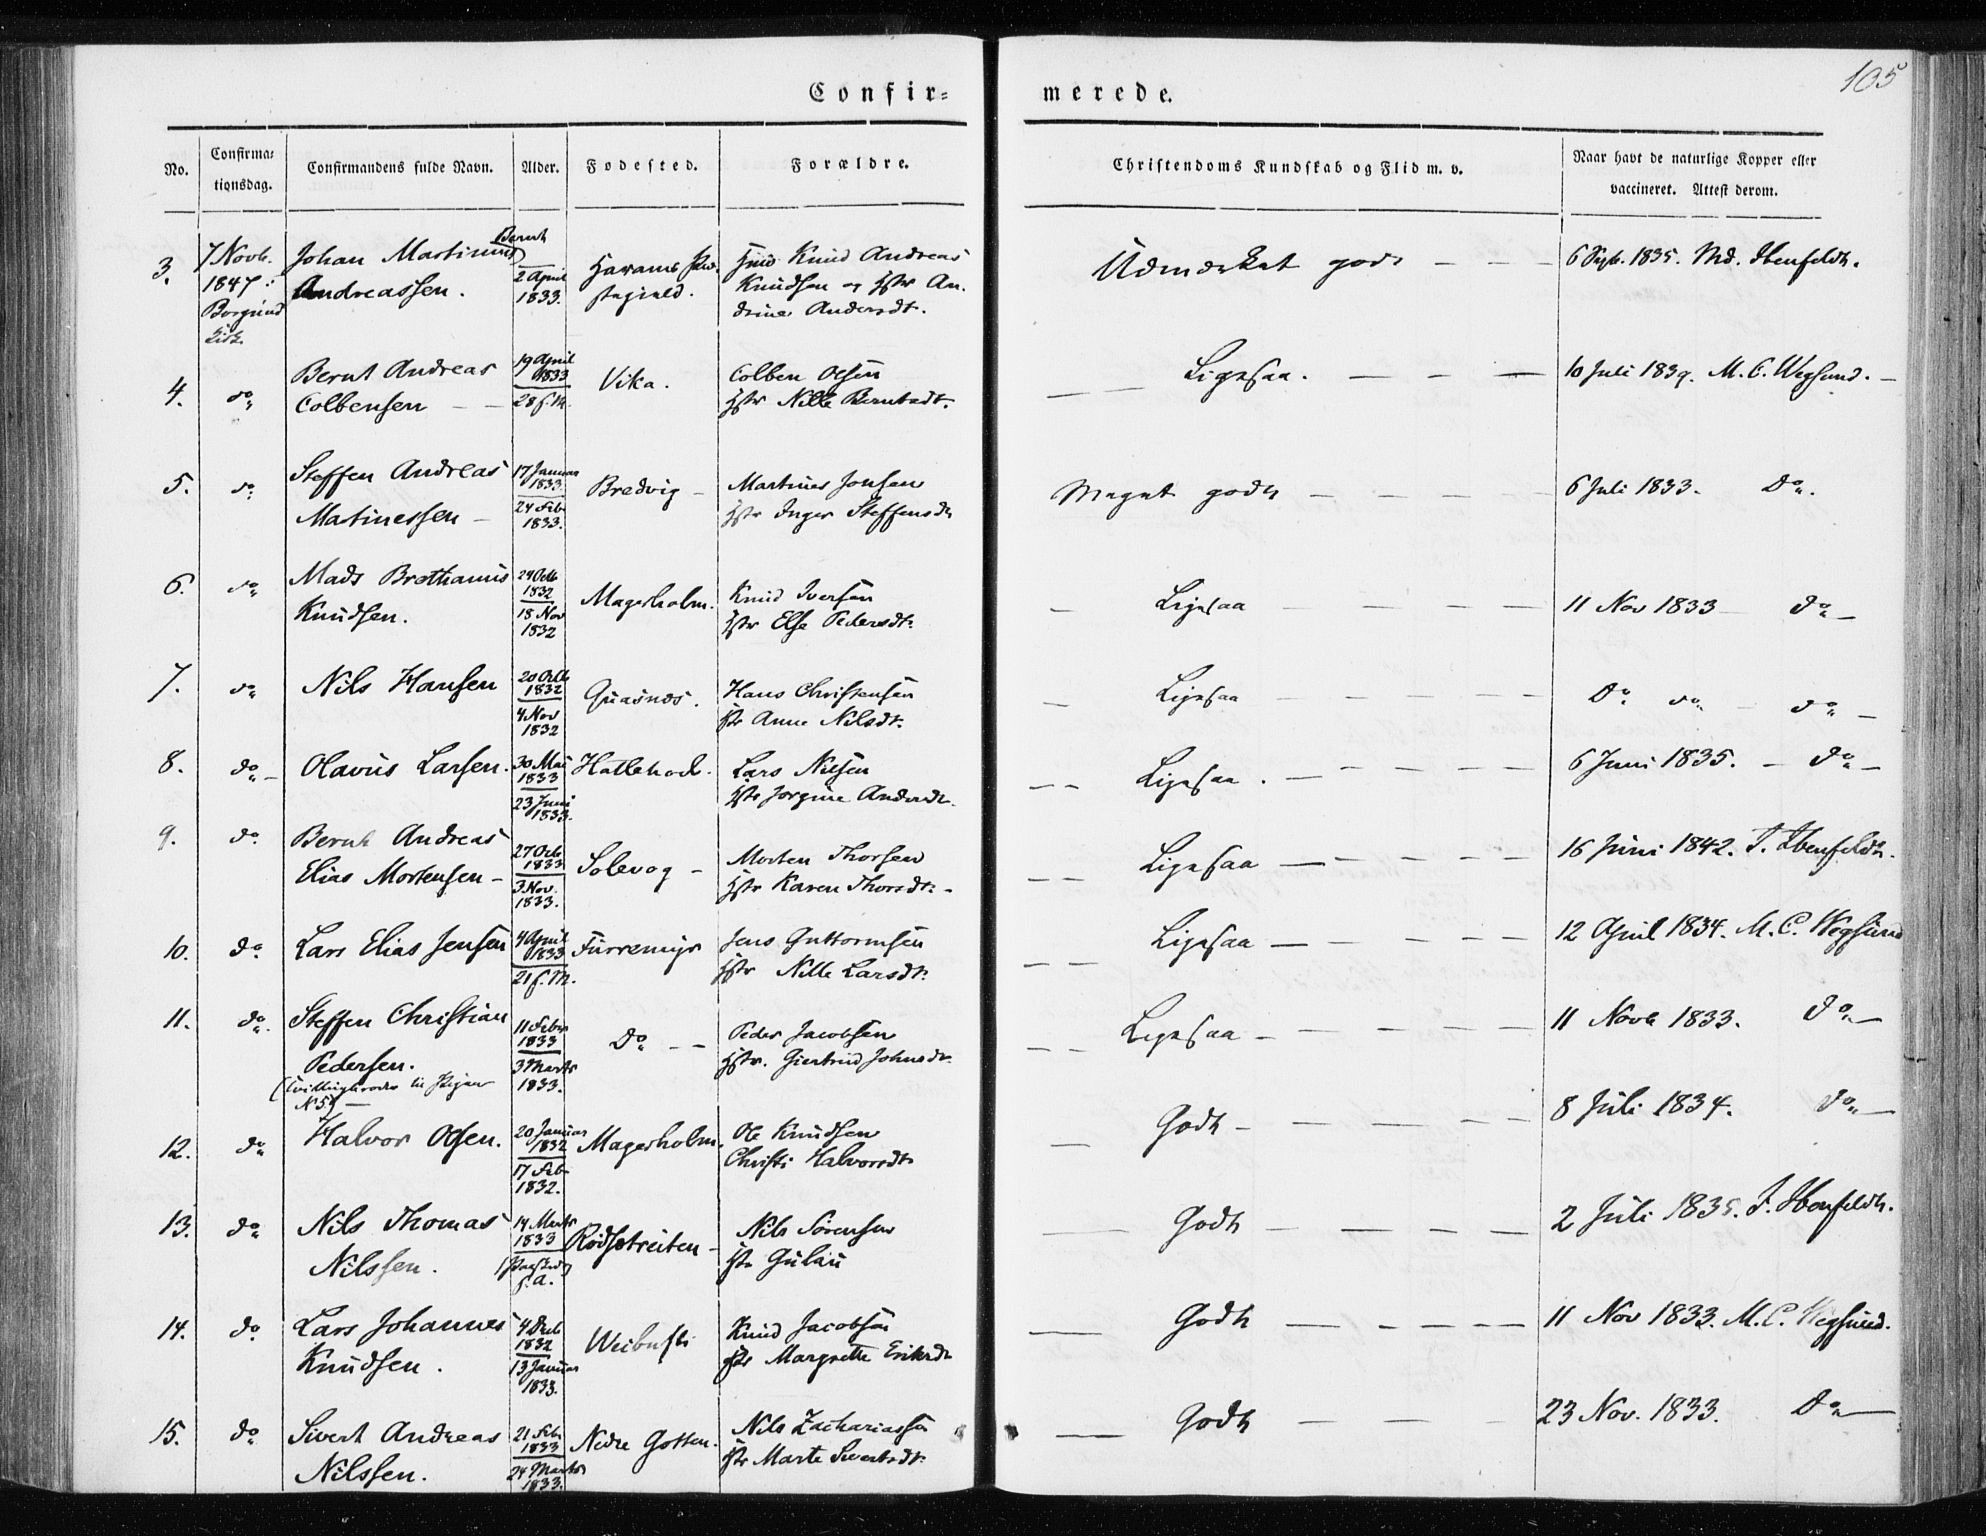 Confir=
merede.
105
No.
Confirma=
tionsdag.
Confirmandens fulde Navn.
Alder.
Fødested.
Forældre.
Christendoms Kundskab og Flid m. v.
Naar havt de naturlige Kopper eller
vaccineret. Attest derom.
3.
7 Novb.
1847 i
Borgund
Kirk.
Johan Martinus Bernt
Andreassen.
2 April
1833.
Harams
Knud Andreas
Knudsen og Hstr An-
drine Andersdt.
Udmærket godt — —
6 Sept. 1835. Md. Ibenfeldt.
4.
do
Bernt Andreas
Colbensen — —
19 April
1833
28 s. M.
Vika.
Colben Olsen
Hstr Nille Berntsdt.
— Ligesaa. — — —
10 Juli 1839. M. C. Wegsund. —
5.
do
Steffen Andreas
Matinessen —
17 Januar
1833
24 Feb
1833.
Bredvig —
Martines Jonsen
Hstr Inger Steffensdt
Meget godt — — — —
6 Juli 1833. Do.
6.
do
Mads Brethanus
Knudsen.
24 Octb
1832
18 Nov
1832
Magerholm.
Knud Iversen
Hstr Else Pedersdt.
— Ligesaa — — — —
11 Nov 1833 — do —
7.
do
Nils Hansen
20 Octb
1832
4 Nov
1832
Guasnæs.
Hans Christensen
Hstr Anne Nilsdt.
— Ligesaa — — — —
Do do — do —
8.
do —
Olavus Larsen.
30 Mai
1833
23 Juni
1833.
Hatlehol.
Lars Nilsen
Hstr Jorgine Andersdt.
— — Ligesaa. — — — —
6 Juni 1835. — do —
9.
do
Bernt Andreas
Elias Mortensen —
27 Octb
1833
3 Nov.
1833.
Solevog —
Morten Thorsen
Hstr Karen Thorsdt. —
— — Ligesaa — — — —
16 Juni 1842. T. Ibenfeldt.
10.
do
Lars Elias Jensen
4 April
1833
21 s. M.
Furremyr
Jens Guttormsen
Hstr Nille Larsdt.
— — Ligesaa — — — —
12 April 1834. M. C. Wegsund
11.
do.
Steffen Christian
Pedersen.
(Tvillingbroder til Pigen
N 5) —
11 Febr
1833
3 Marts
1833.
Do — —
Peder Jacobsen
Hstr. Giertrud Johnsdt.
— — Ligesaa — — — —
11 Novb 1833. do —
12.
do
Halvor Olsen.
20 Januar
1832
17 Feb
1832.
Magerholm.
Ole Knudsen
Christi Halvorsdt
— Godt — — — —
8 Juli 1834. do —
13.
do
Nils Thomas
Nilssen.
14 Marts
1833
s. A.
Rødsetreiten —
Nils Sørensen
Hstr Gulau
— Godt — — — —
2 Juli 1835. T. Ibenfeldt.
14.
do
Lars Johannes
Knudsen.
4 Decb
1832
13 Januar
1833.
Weibust
Knud Jacobsen
Hstr Margrethe Eriksdt
— Godt — — — —
11 Nov 1833. M. C. Wegsund.
15.
do
Sivert Andreas
Nilssen.
21 Feb.
1833
24 Marts
1833.
Nedre Gotten.
Nils Zachariassen
Hstr Marte Sivertsdt.
— Godt — — — —
23 Nov. 1833. Do —